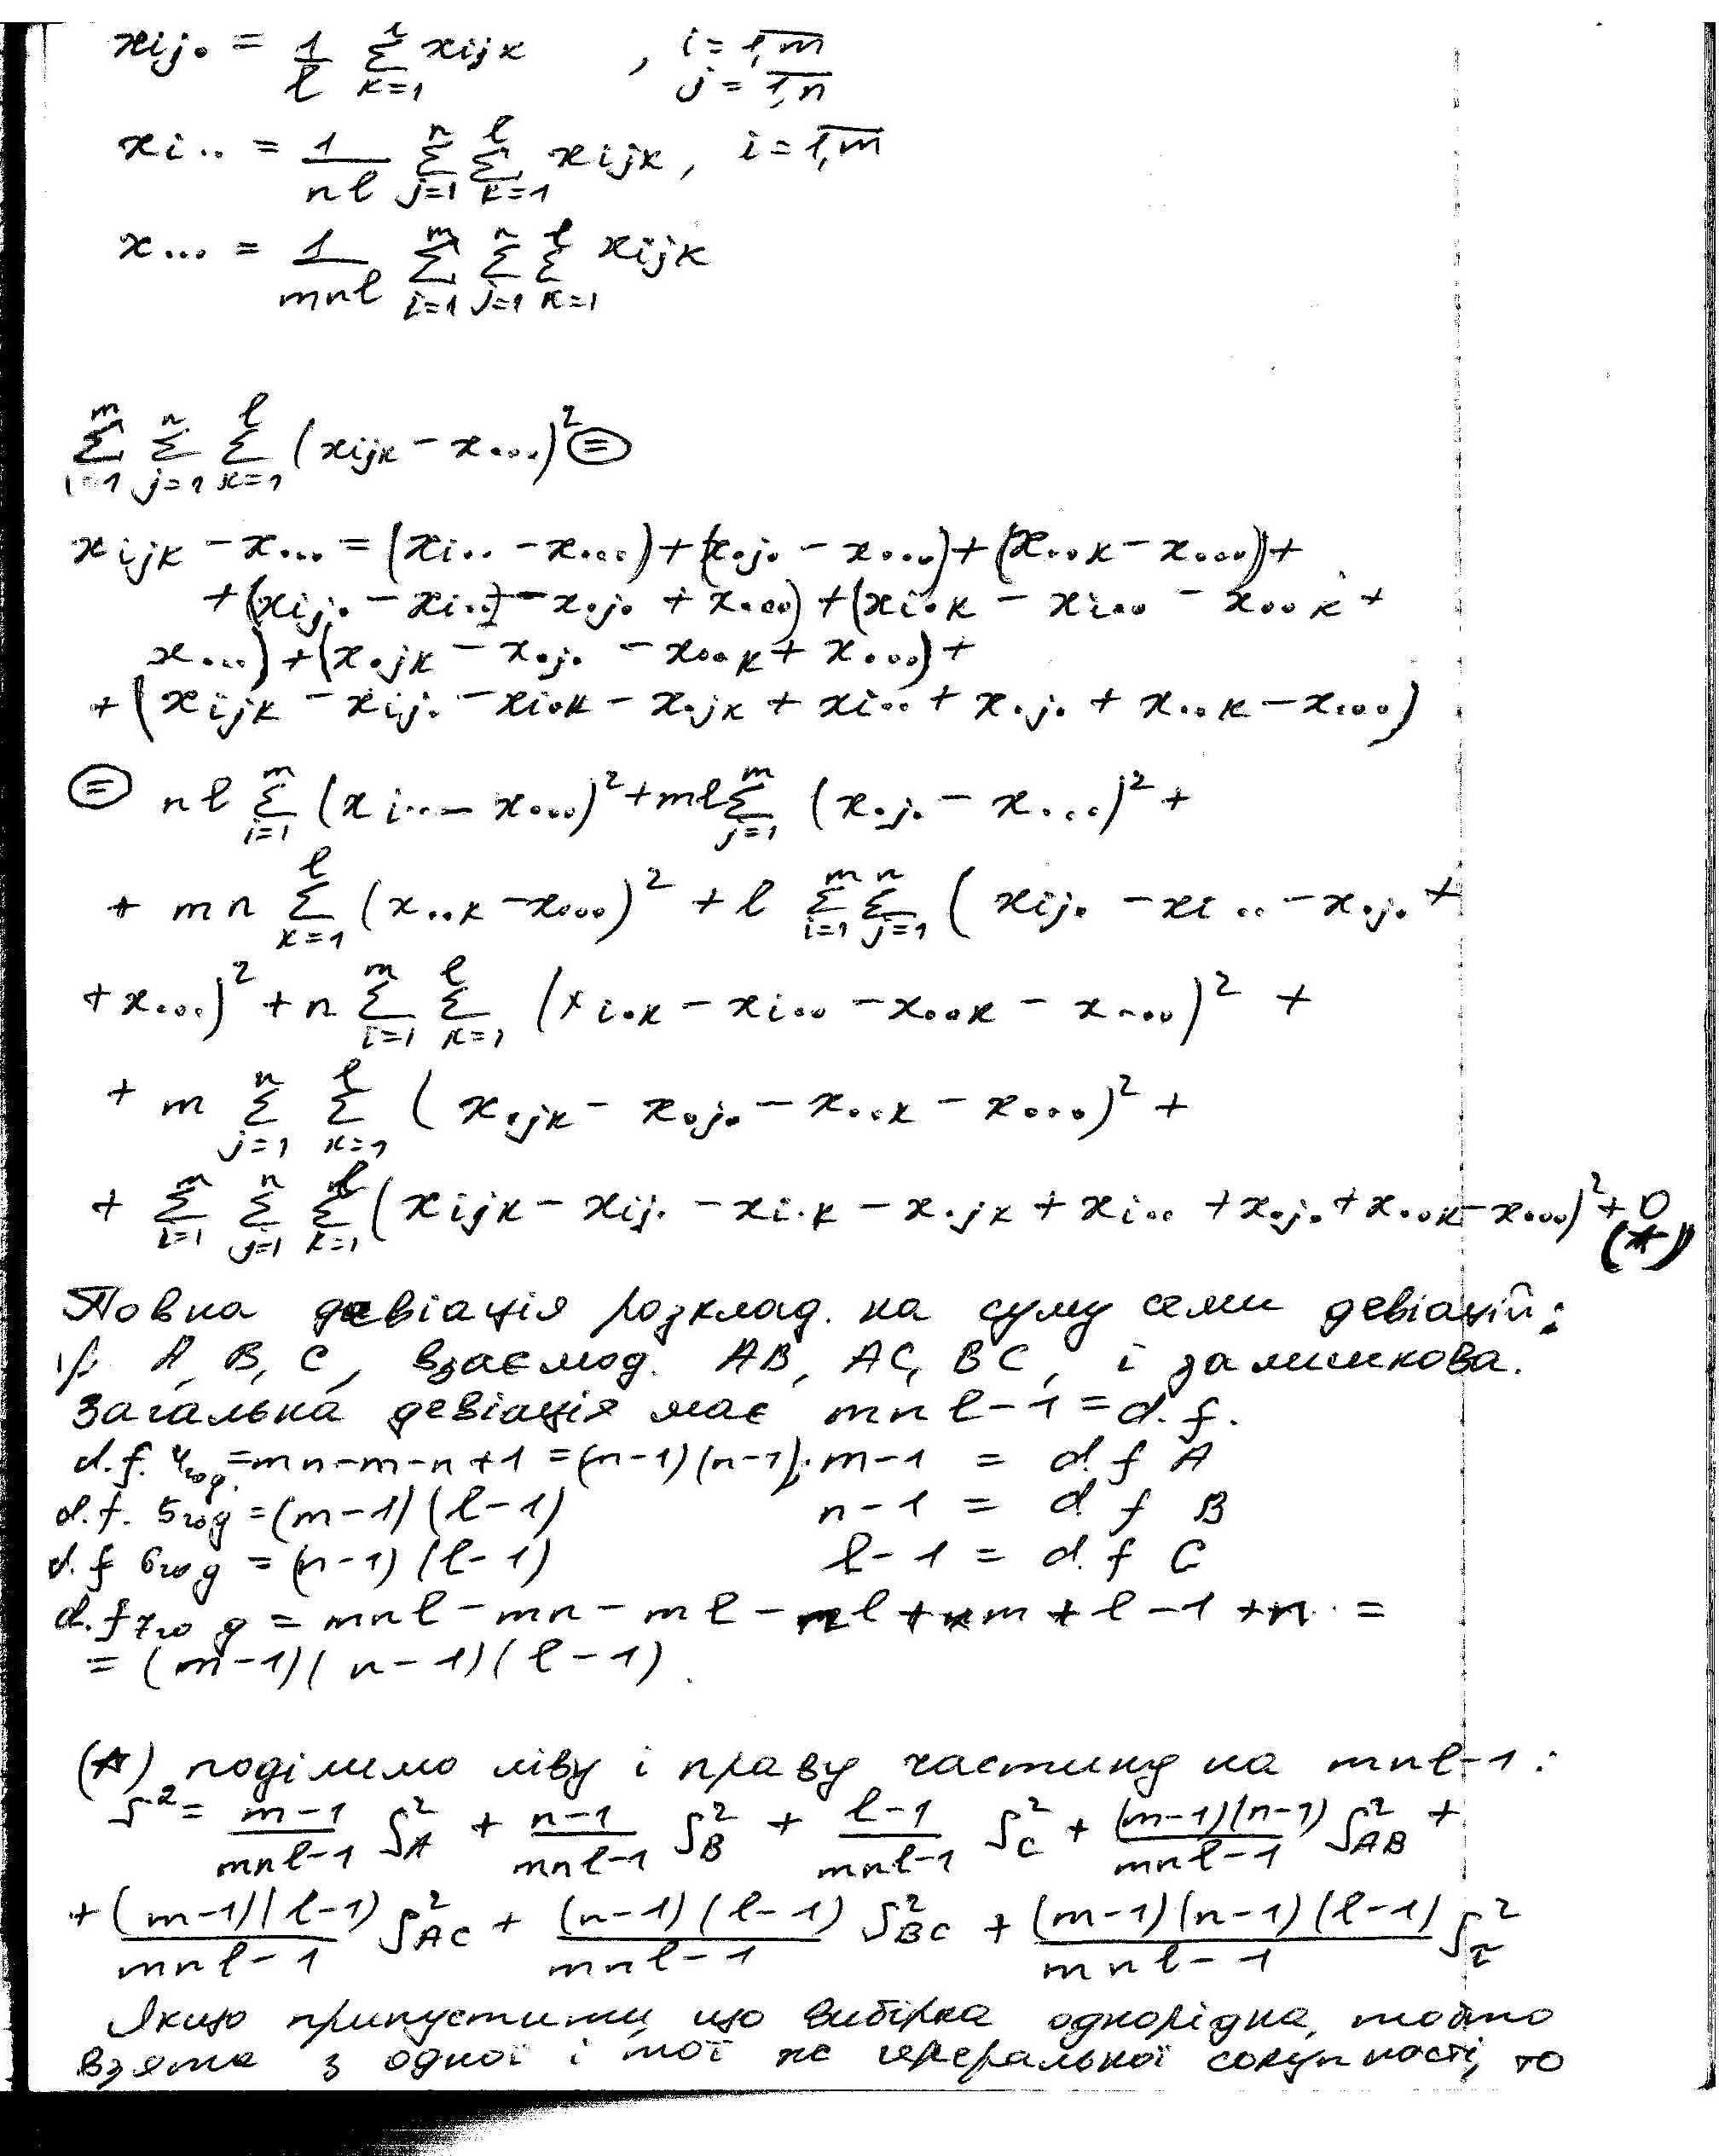 xij• = 1/l Σ(k=1) xijk , i = 1,m
j = 1,n
xi•• = 1/(nl) Σ(j=1..n) Σ(k=1..l) xijk, i = 1,m
x••• = 1/(mnl) Σ(i=1..m) Σ(j=1..n) Σ(k=1..l) xijk
Σ(i=1..m) Σ(j=1..n) Σ(k=1..l) (xijk − x•••)² ⊜
xijk − x••• = (xi•• − x•••) + (x•j• − x•••) + (x••k − x•••) +
+ (xij• − xi•• − x•j• + x•••) + (xi•k − xi•• − x••k +
x•••) + (x•jk − x•j• − x••k + x•••) +
+ (xijk − xij• − xi•k − x•jk + xi•• + x•j• + x••k − x•••)
⊜ nl Σ(i=1..m) (xi•• − x•••)² + ml Σ(j=1..m) (x•j• − x•••)² +
+ mn Σ(k=1..l) (x••k − x•••)² + l Σ(i=1..m) Σ(j=1..n) (xij• − xi•• − x•j• +
+ x•••)² + n Σ(i=1..m) Σ(k=1..l) (xi•k − xi•• − x••k − x•••)² +
+ m Σ(j=1..n) Σ(k=1..l) (x•jk − x•j• − x••k − x•••)² +
+ Σ(i=1..m) Σ(j=1..n) Σ(k=1..l) (xijk − xij• − xi•k − x•jk + xi•• + x•j• + x••k − x•••)² + 0
(*)
Повна девіація розклад. на суму семи девіацій:
A, B, C, взаємод. AB, AC, BC, і залишкова.
Загальна девіація має mnl−1 = d.f.
d.f. 4год. = mn−m−n+1 = (n−1)(n−1); m−1 = d.f A
d.f. 5год = (m−1)(l−1) n−1 = d f B
d.f 6год = (n−1)(l−1) l−1 = d.f C
d.f 7год = mnl − mn − ml − nl + m + l − 1 + n =
= (m−1)(n−1)(l−1).
(*) поділимо ліву і праву частину на mnl−1:
S² = (m−1)/(mnl−1) S²A + (n−1)/(mnl−1) S²B + (l−1)/(mnl−1) S²C + (m−1)(n−1)/(mnl−1) S²AB +
+ (m−1)(l−1)/(mnl−1) S²AC + (n−1)(l−1)/(mnl−1) S²BC + (m−1)(n−1)(l−1)/(mnl−1) S²z
Якщо припустити, що вибірка однорідна, тобто
взята з одної і тої же генеральної сокупності, то